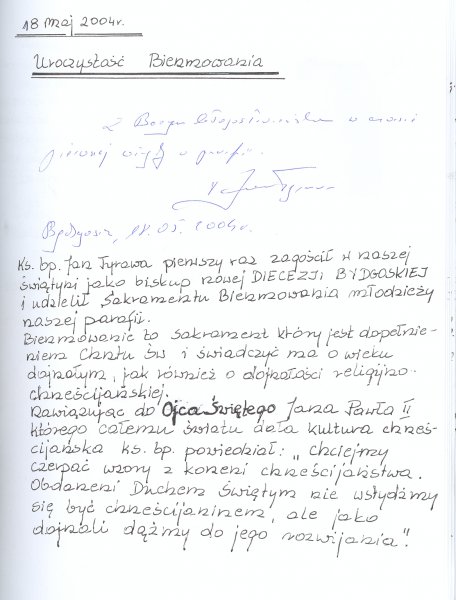 18 maj 2004r.
Uroczystość Bierzmowania
Z Bożym błogosławieństwem w czasie
pierwszej wizyty w parafii.
Bydgoszcz, 18.05.2004r.
Ks. bp. Jan Tyrawa pierwszy raz zagościł w naszej
świątyni jako biskup nowej DIECEZJI BYDGOSKIEJ
i udzielił Sakramentu Bierzmowania młodzieży
naszej parafii.
Bierzmowanie to sakrament który jest dopełnie-
niem Chrztu Św i świadczyć ma o wieku
dojrzałym, jak również o dojrzałości religijno-
chrześcijańskiej.
Nawiązując do Ojca Świętego Jana Pawła II
którego całemu światu dała kultura chrześ-
cijańska ks. bp. powiedział: „chciejmy
czerpać wzory z korzeni chrześcijaństwa.
Obdarzeni Duchem Świętym nie wstydźmy
się być chrześcijaninem, ale jako
dojrzali dążmy do jego rozwijania".